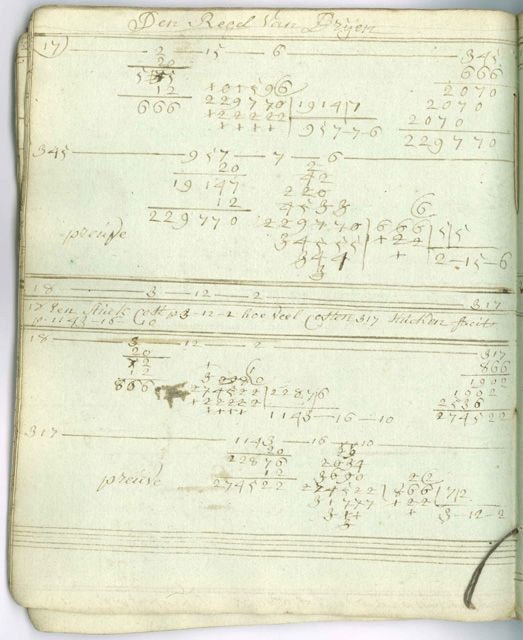 Den Regel Van Dryen
17
2 — 15 — 6 — 345
20 666
55 2070
12 2070
666 2070
229770
101596
229770 | 19147
122222 957-7-6
345 — 957 — 7 — 6
20
19147
12
229770
preuve
42
220
4533
229770 | 666 | 55
34555 2-15-6
344
3
18 — 3 — 12 — 2 — 317
18 Een stuck Cost p 3-12-2 hoe veel Costen 317 stucken facit
p 1143-16-10
18 3 — 12 — 2 317
20 866
72 1902
12 1902
866 2536
274522
274522 | 22876
122222 1143-16-10
317 — 1143 — 16 — 10
20
22876
12
274522
preuve
2634
3690
274522 | 866 | 72
31777 3-12-2
3